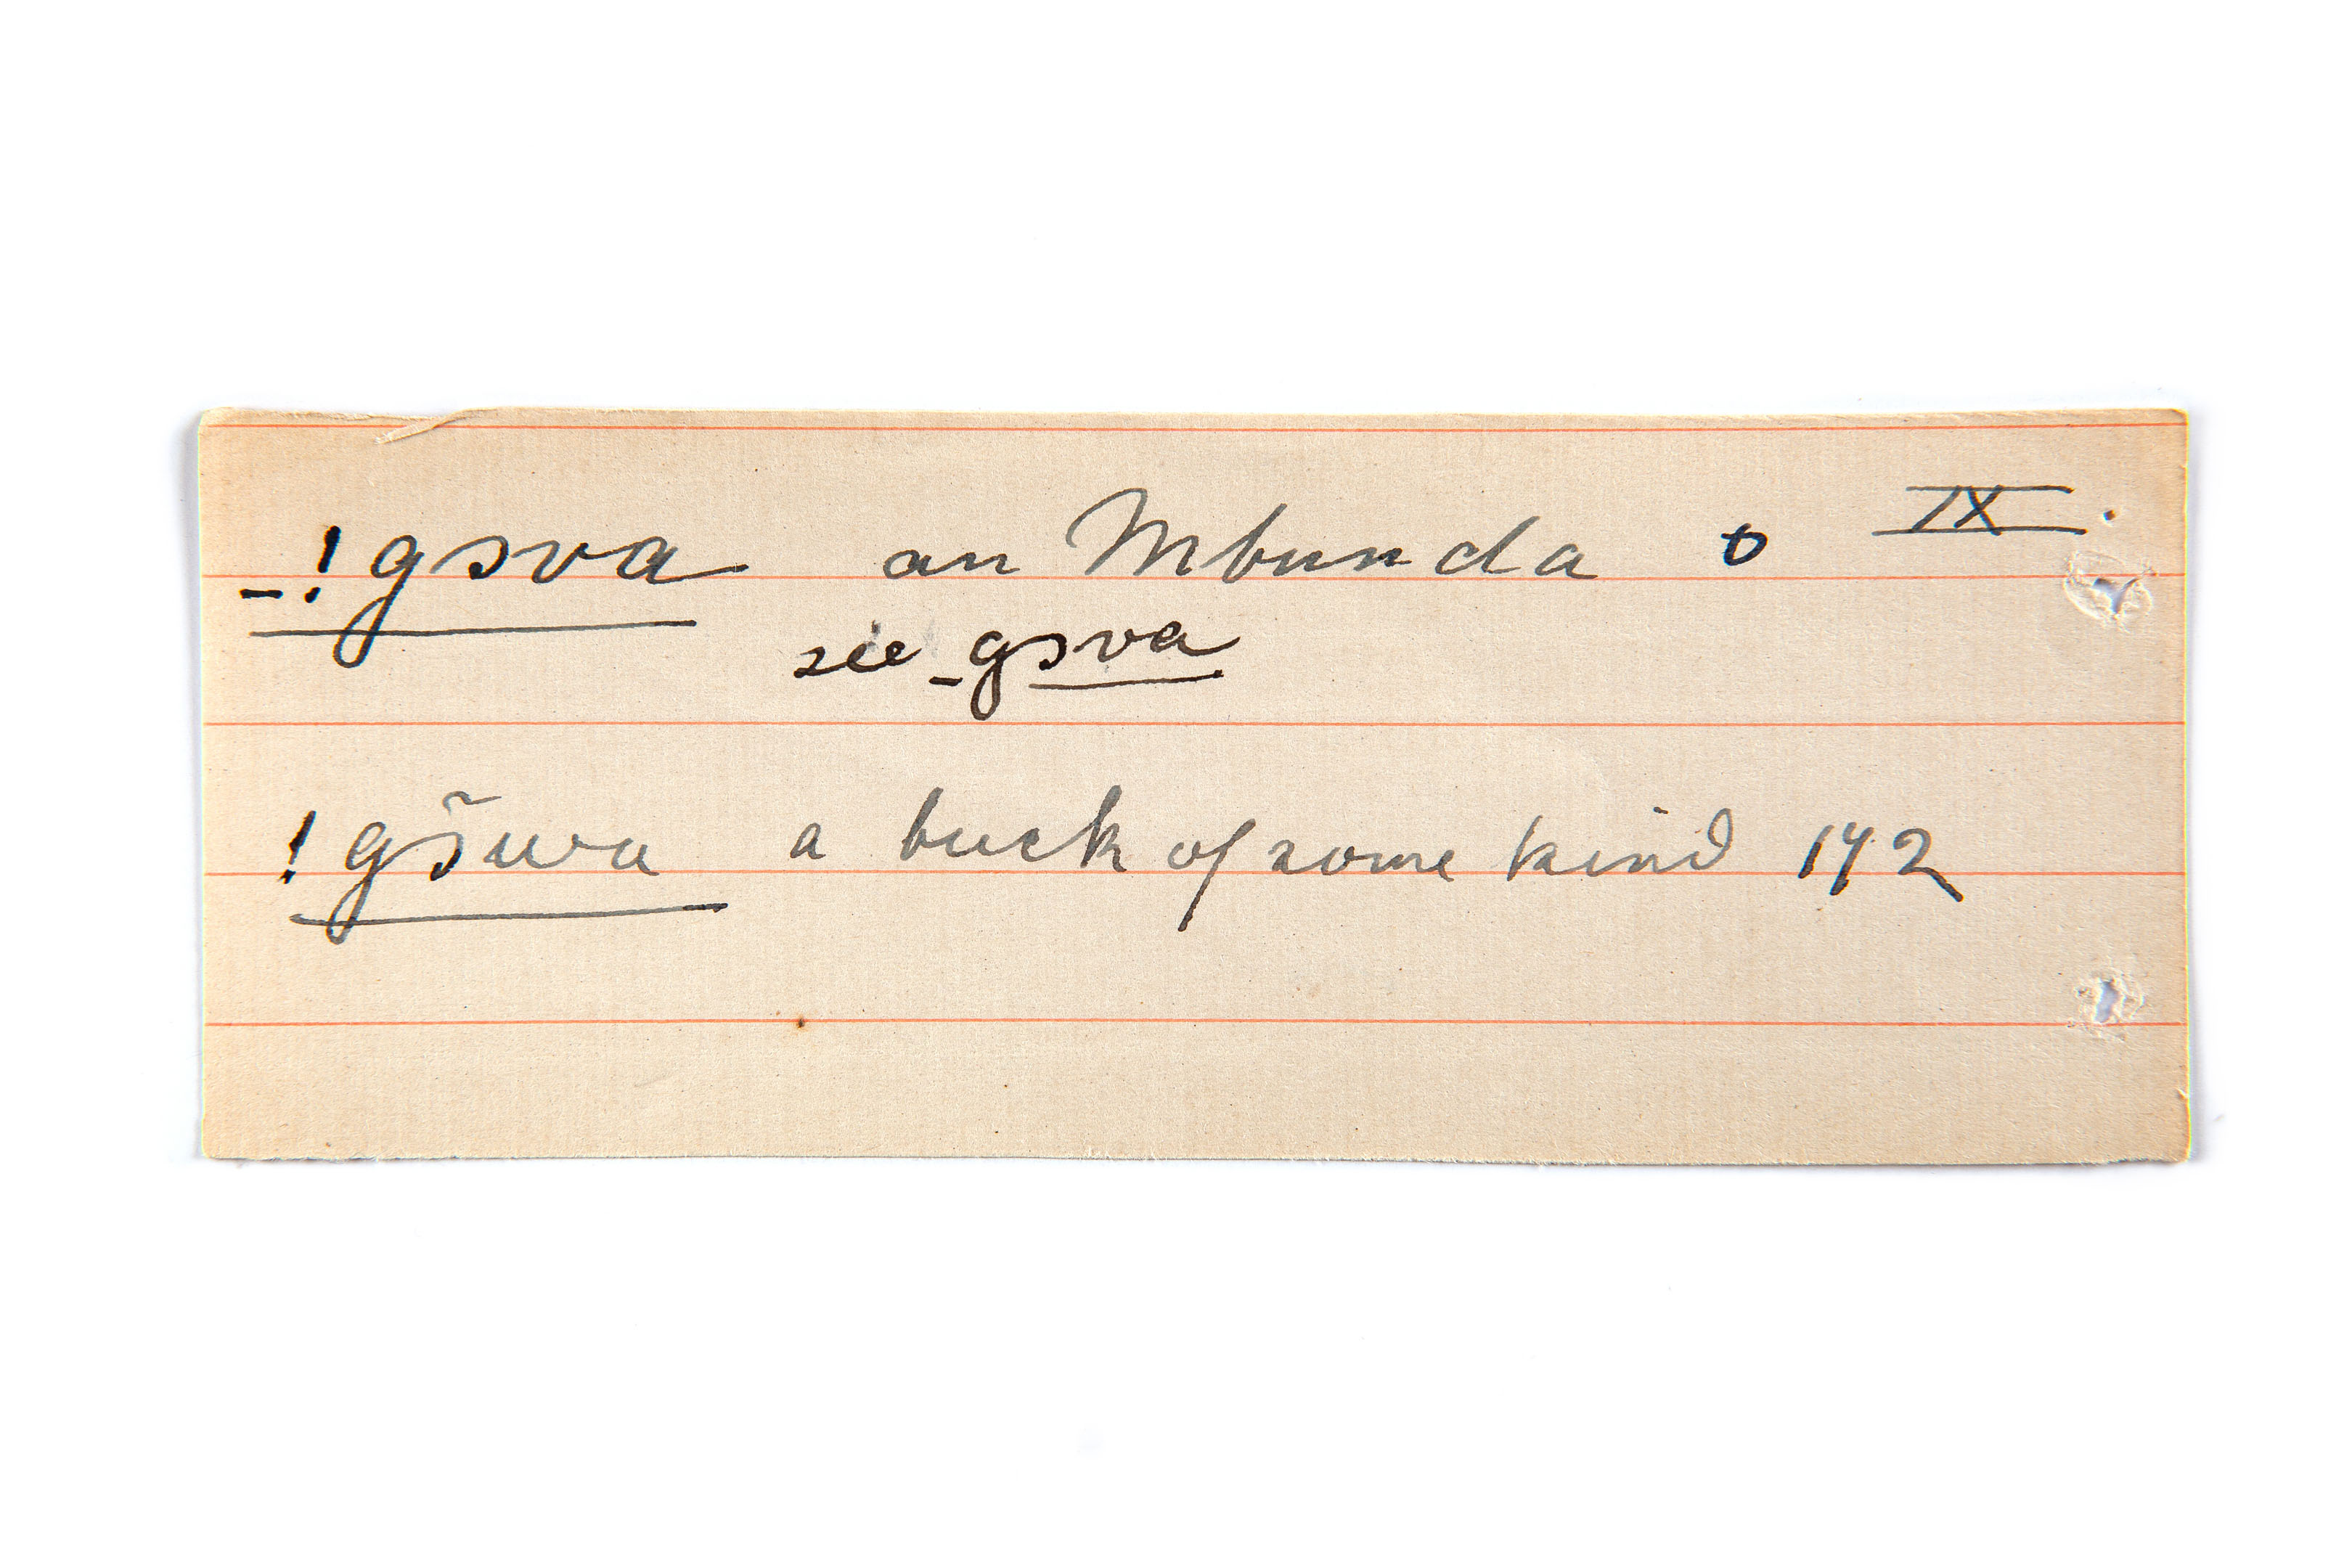 _!gɔva an Mbunda o IX.
see _gɔva
!gɔ̃wa a buck of some kind 142